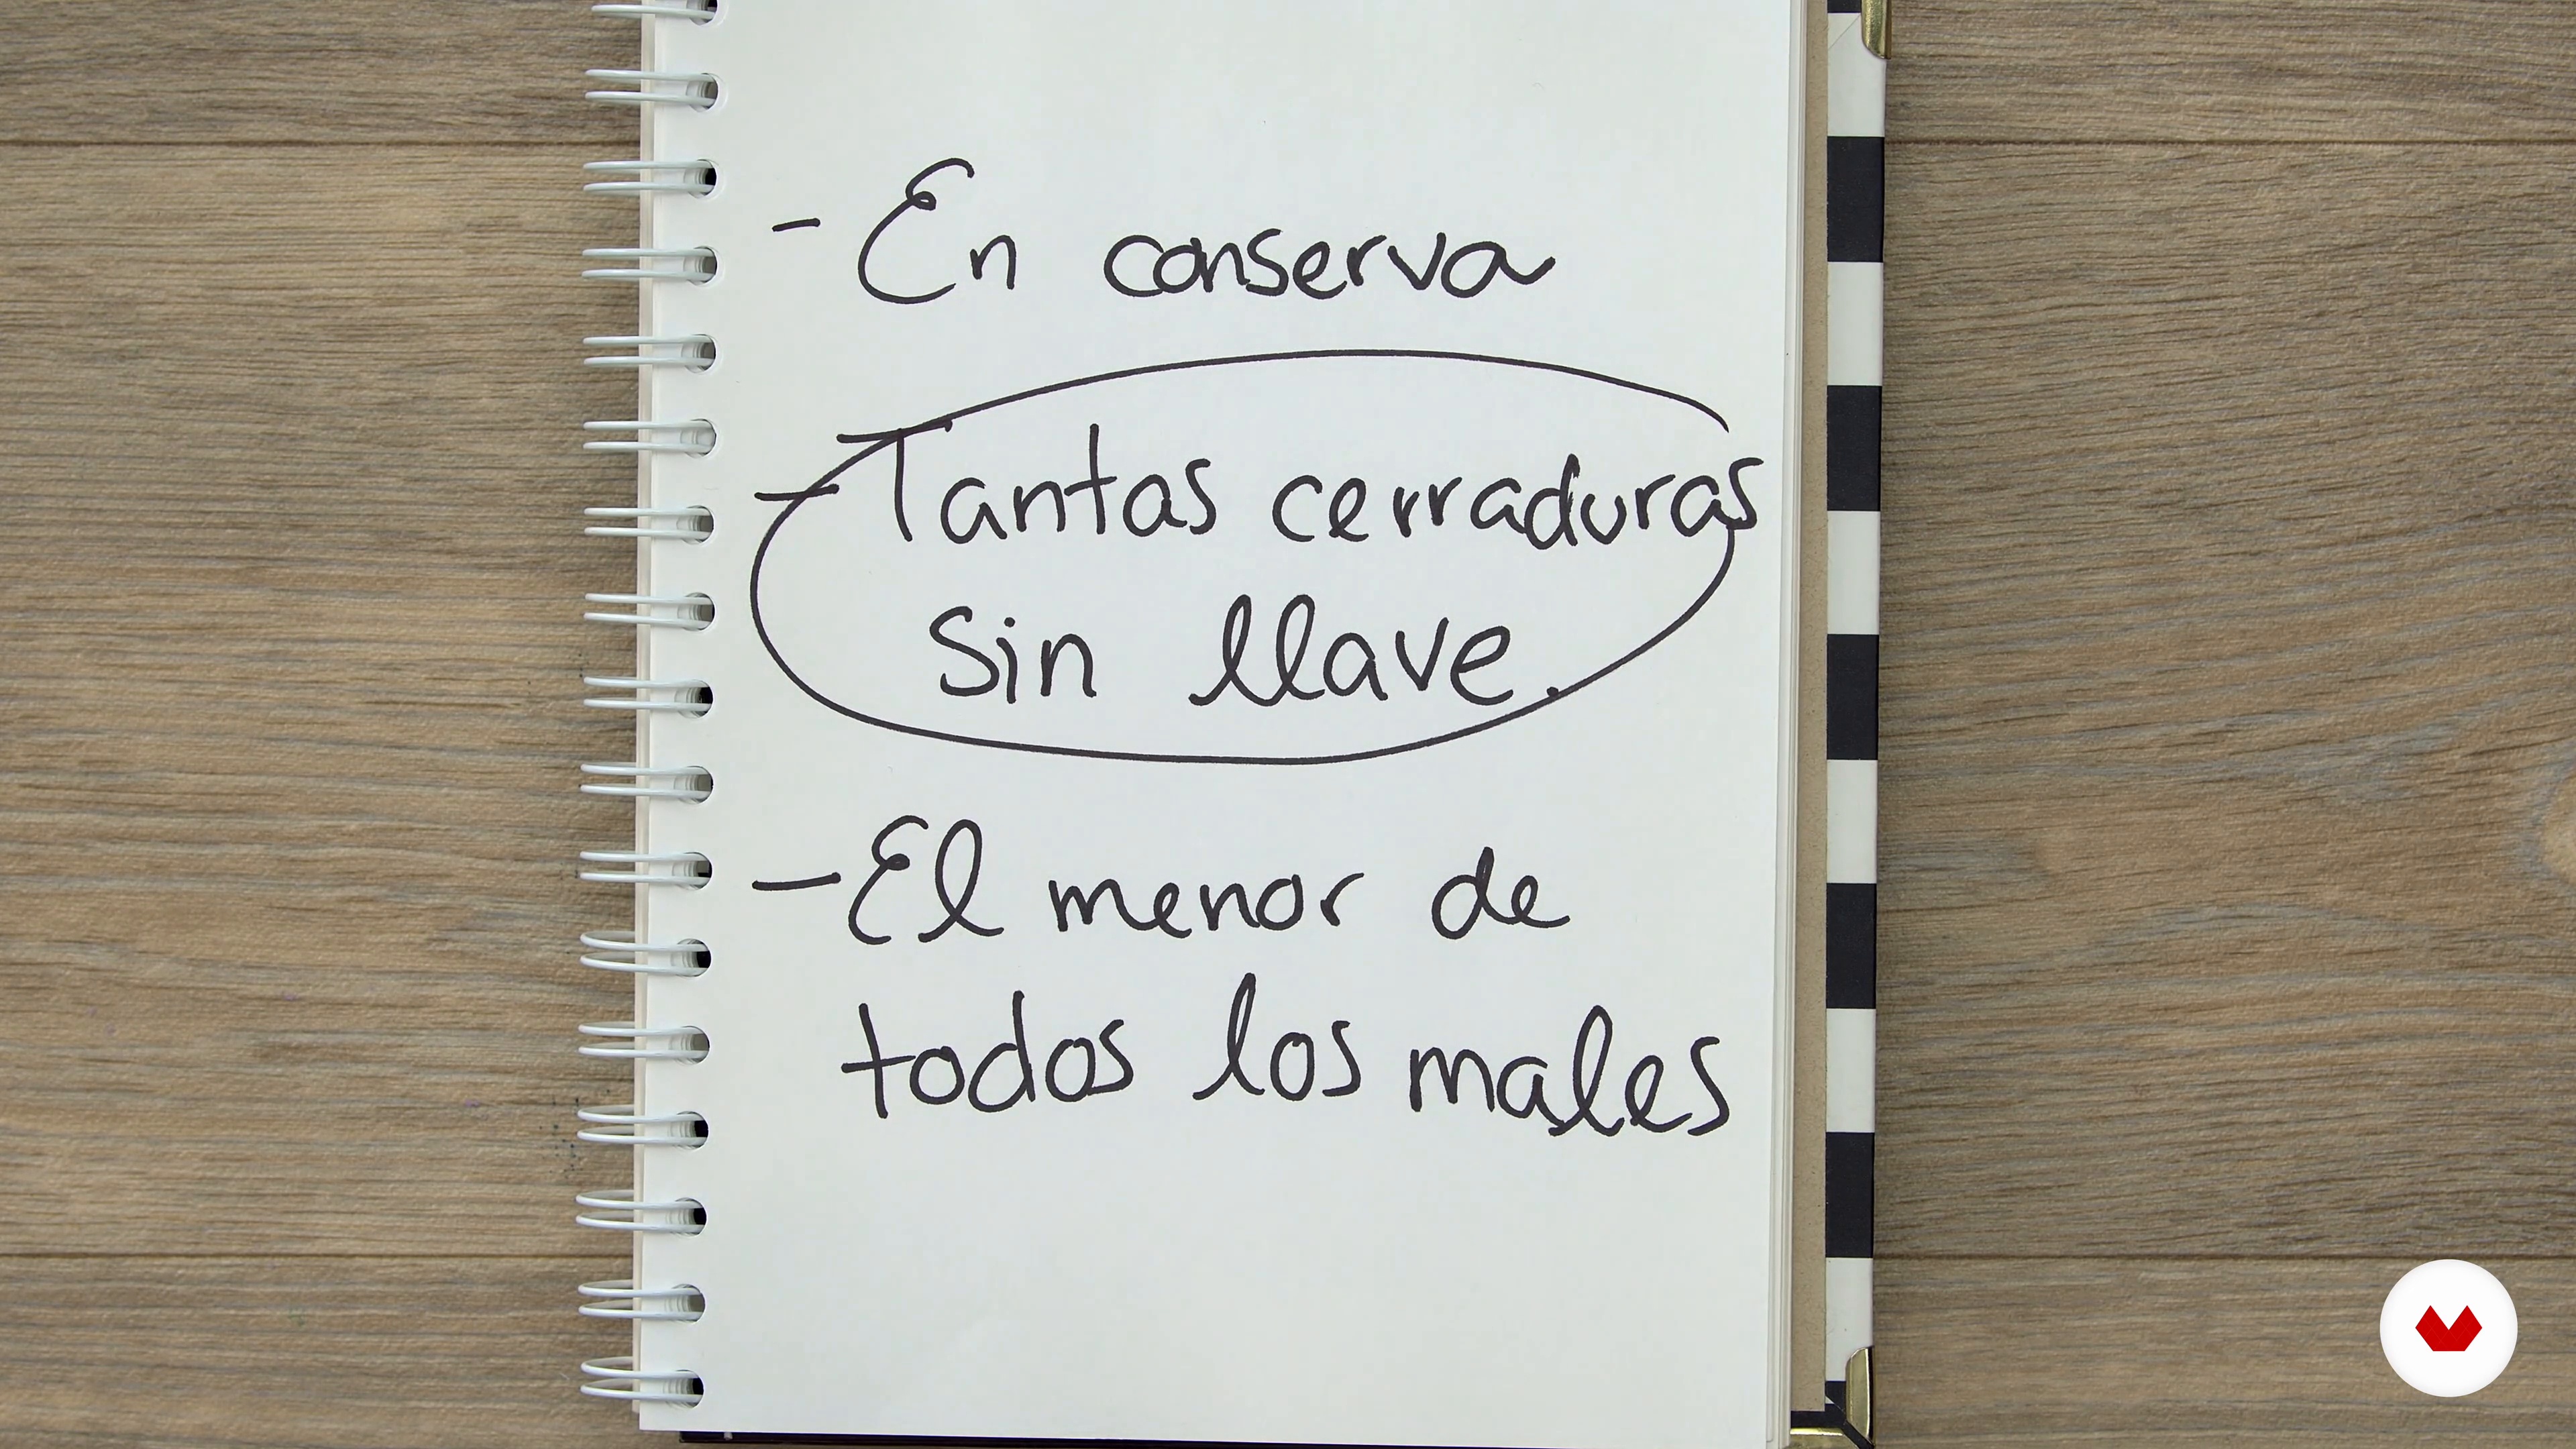 - En conserva
- Tantas cerraduras
sin llave.
- El menor de
todos los males